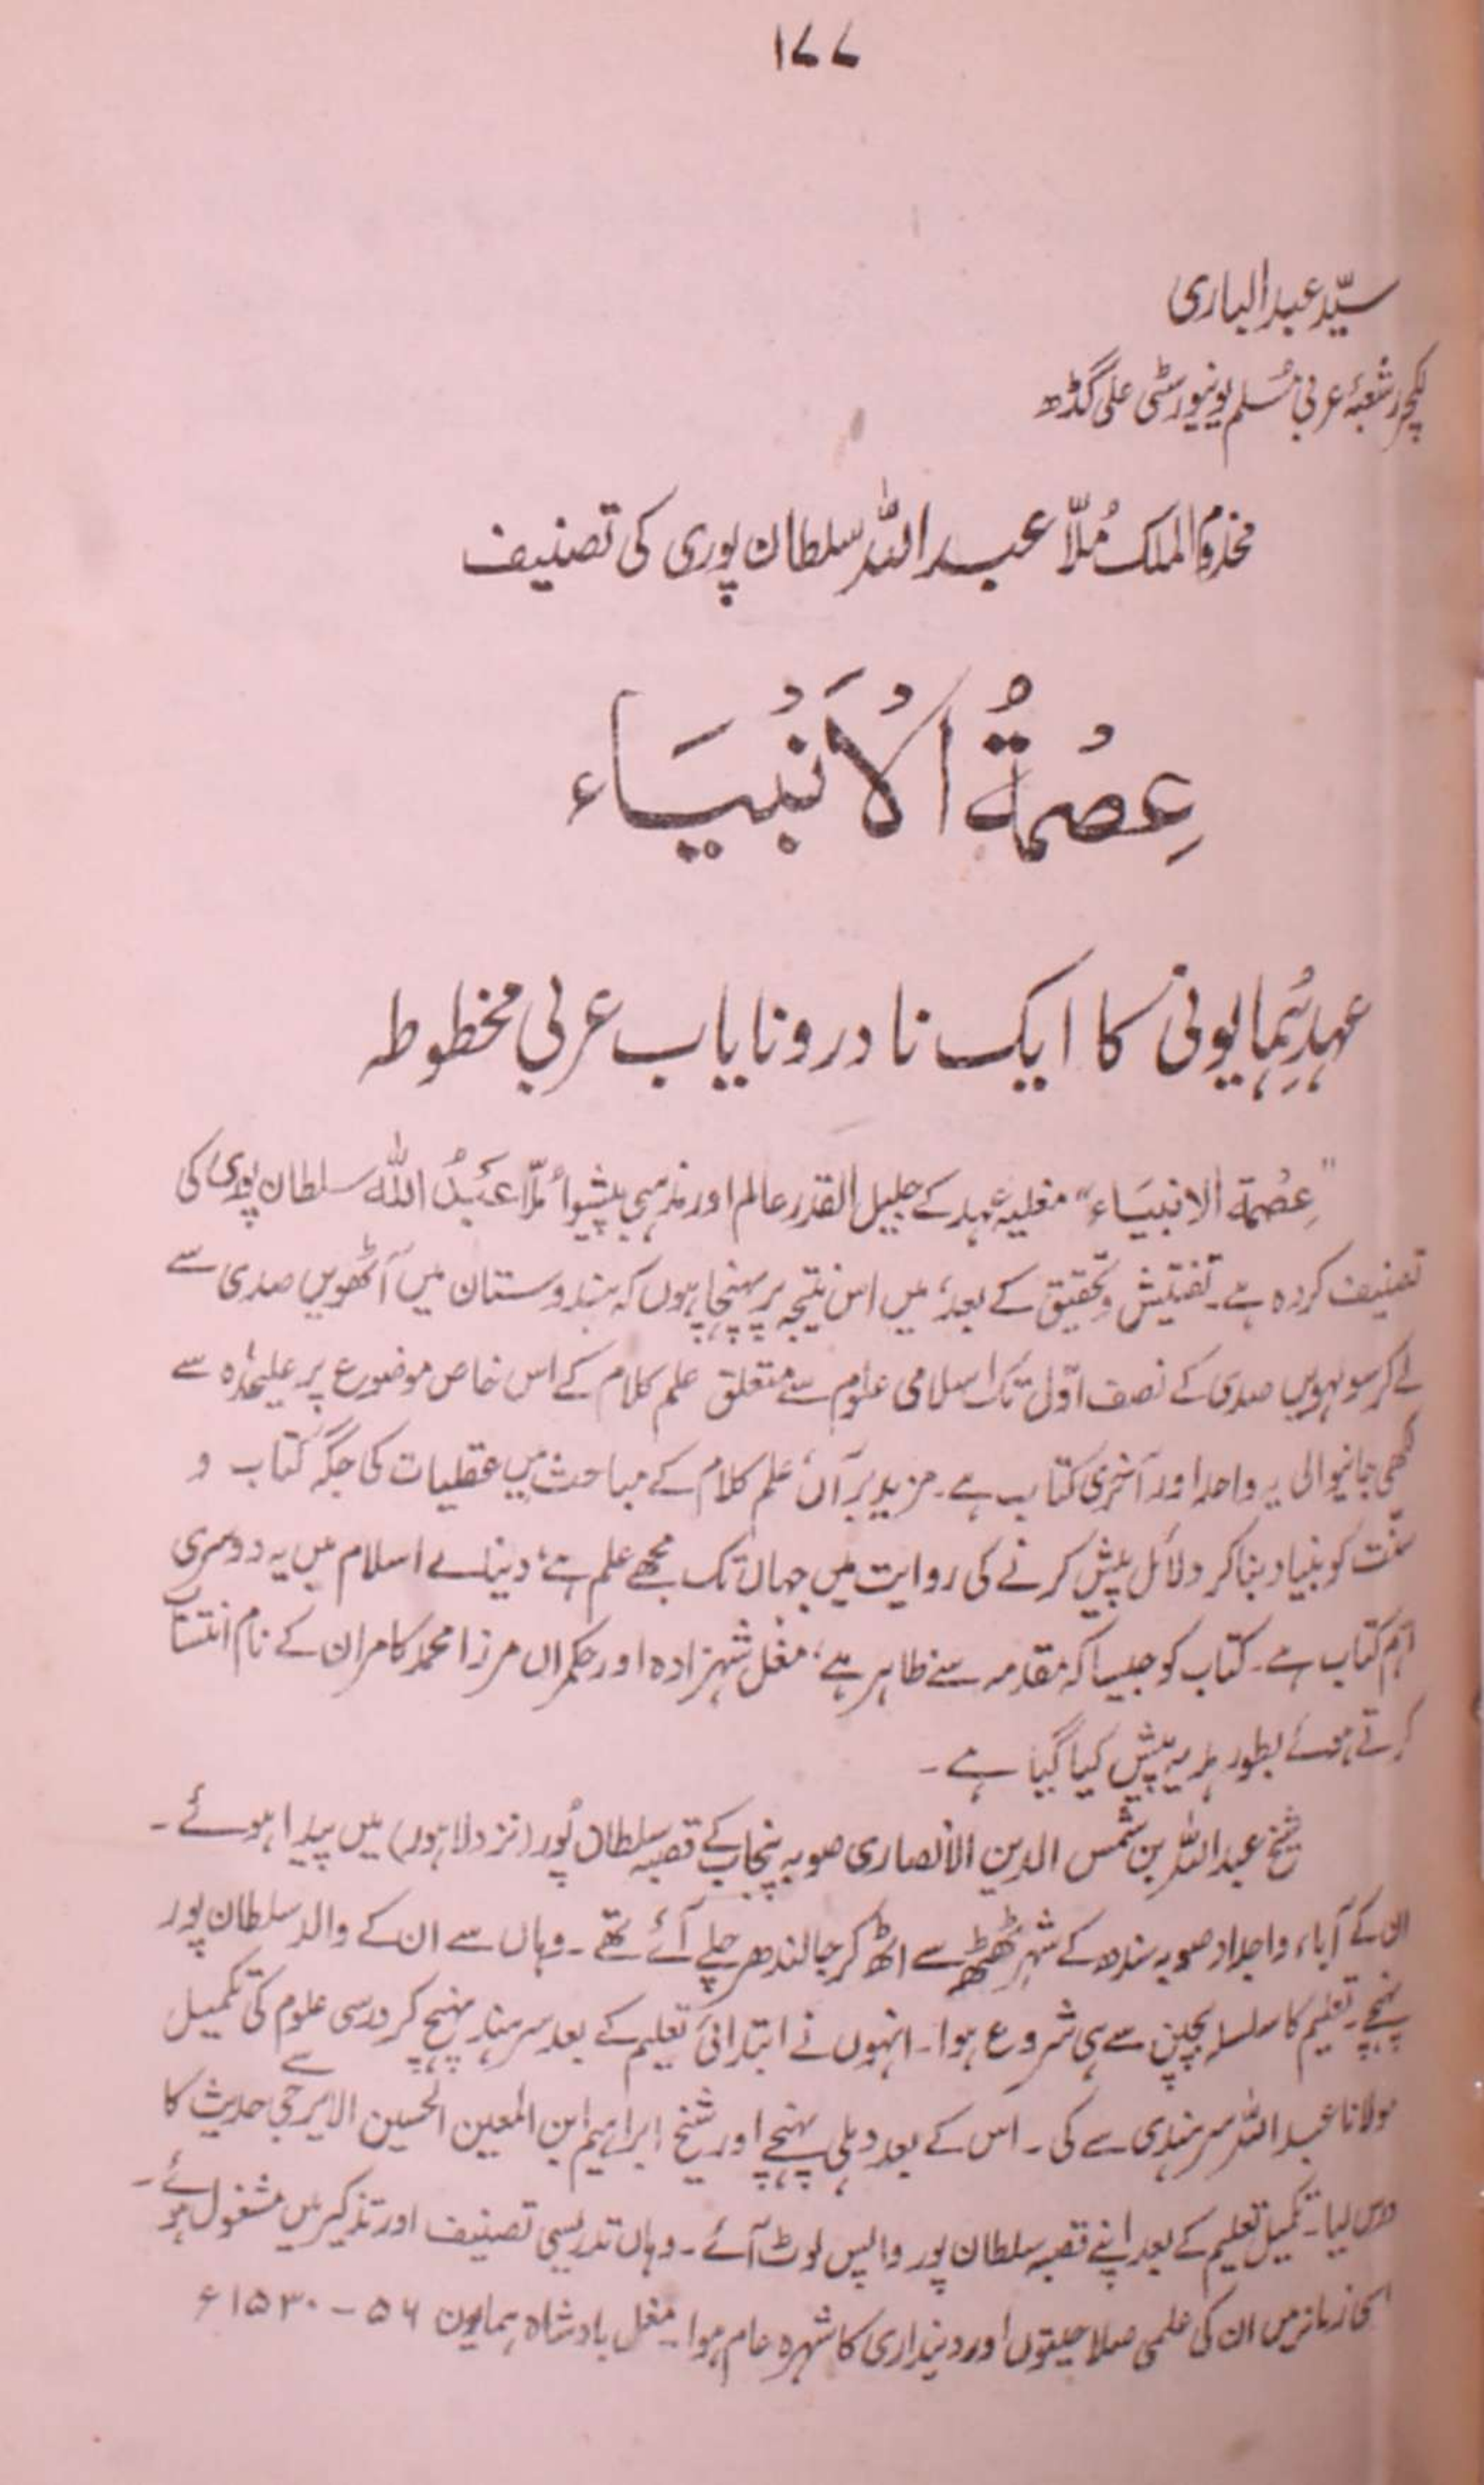 ۱۷۷
سیّد عبدالباری
لکچرر شعبۂ عربی مسلم یونیورسٹی علی گڈھ
مخدوم الملک مُلّا عبداللہ سلطان پوری کی تصنیف
عِصْمَةُ الْاَنْبِيَاء
عہدِ ہُمایونی کا ایک نادر و نایاب عربی مخطوطہ
"عِصْمۃ الانبیَاء" مغلیہ عہد کے جلیل القدر عالم اور مذہبی پیشوا مُلّا عَبْدُ اللہ سلطان پوری کی
تصنیف کردہ ہے۔ تفتیش و تحقیق کے بعد، میں اس نتیجہ پر پہنچا ہوں کہ ہندوستان میں آٹھویں صدی سے
لے کر سولہویں صدی کے نصف اوّل تک اسلامی علوم سے متعلق علم کلام کے اس خاص موضوع پر علیحٰدہ سے
لکھی جانیوالی یہ واحد اور آخری کتاب ہے۔ مزید برآں، علم کلام کے مباحث میں عقلیات کی جگہ کتاب و
سنّت کو بنیاد بناکر دلائل پیش کرنے کی روایت میں جہاں تک مجھے علم ہے، دنیائے اسلام میں یہ دوسری
اہم کتاب ہے۔ کتاب کو جیسا کہ مقدمہ سے ظاہر ہے، مغل شہزادہ اور حکمراں مرزا محمد کامران کے نام انتساب
کرتے ہوئے بطور ہدیہ پیش کیا گیا ہے۔
شیخ عبداللہ بن شمس الدین الانصاری صوبہ پنجاب کے قصبہ سلطان پُور (نزد لاہور) میں پیدا ہوئے۔
ان کے آباء و اجداد صوبہ سندھ کے شہر ٹھٹھہ سے اٹھ کر جالندھر چلے آئے تھے۔ وہاں سے ان کے والد سلطان پور
پہنچے۔ تعلیم کا سلسلہ بچپن سے ہی شروع ہوا۔ انہوں نے ابتدائی تعلیم کے بعد سرہند پہنچ کر درسی علوم کی تکمیل
مولانا عبداللہ سرہندی سے کی۔ اس کے بعد دہلی پہنچے اور شیخ ابراہیم ابن المعین الحسین الایرجی سے حدیث کا
درس لیا۔ تکمیل تعلیم کے بعد اپنے قصبہ سلطان پور واپس لوٹ آئے۔ وہاں تدریسی تصنیف اور تذکیر میں مشغول ہوئے۔
زمانہ میں ان کی علمی صلاحیتوں اور دینداری کا شہرہ عام ہوا۔ مغل بادشاہ ہمایون ۵۶ - ۱۵۳۰ء